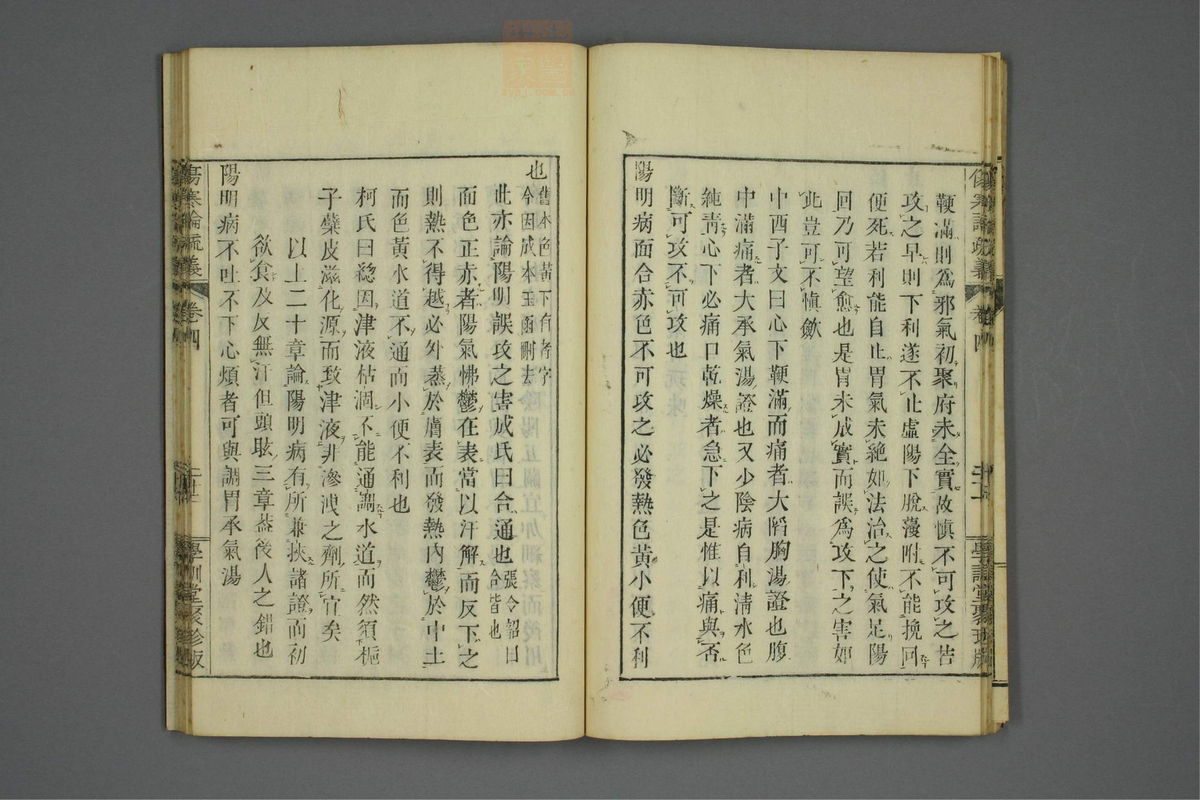 傷寒論疏義 卷四 學訓堂聚珍版
鞕滿則爲邪氣初聚府未全實故愼不可攻之若
攻之早則下利遂不止虛陽下脫薓附不能挽回
便死若利能自止胃氣未絶如法治之使氣足陽
回乃可望愈也是胃未成實而誤爲攻下之害如
此豈可不愼歟
中西子文曰心下鞕滿而痛者大陷胸湯證也腹
中滿痛者大承氣湯證也又少陰病自利淸水色
純靑心下必痛口乾燥者急下之是惟以痛與否
斷可攻不可攻也
陽明病面合赤色不可攻之必發熱色黃小便不利
也舊本色黃下有者字今因成本玉函刪去
此亦論陽明誤攻之害成氏曰合通也張令韶曰合皆也
面色正赤者陽氣怫鬱在表當以汗解而反下之
則熱不得越必外蒸於膚表而發熱內鬱於中土
而色黃水道不通而小便不利也
柯氏曰總因津液枯涸不能通調水道而然須梔
子蘗皮滋化源而致津液非滲洩之劑所宜矣
以上二十章論陽明病有所兼挾諸證而初
欲食及反無汗但頭眩三章葢後人之錯也
陽明病不吐不下心煩者可與調胃承氣湯
傷寒論疏義 卷四 學訓堂聚珍版